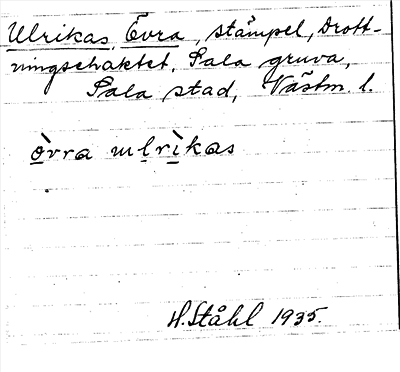 Ulrikas, Övra, stämpel, Drott-
ningschaktet, Sala gruva,
Sala stad, Västm. l.
òvra ulrìkas
H. Ståhl 1935.